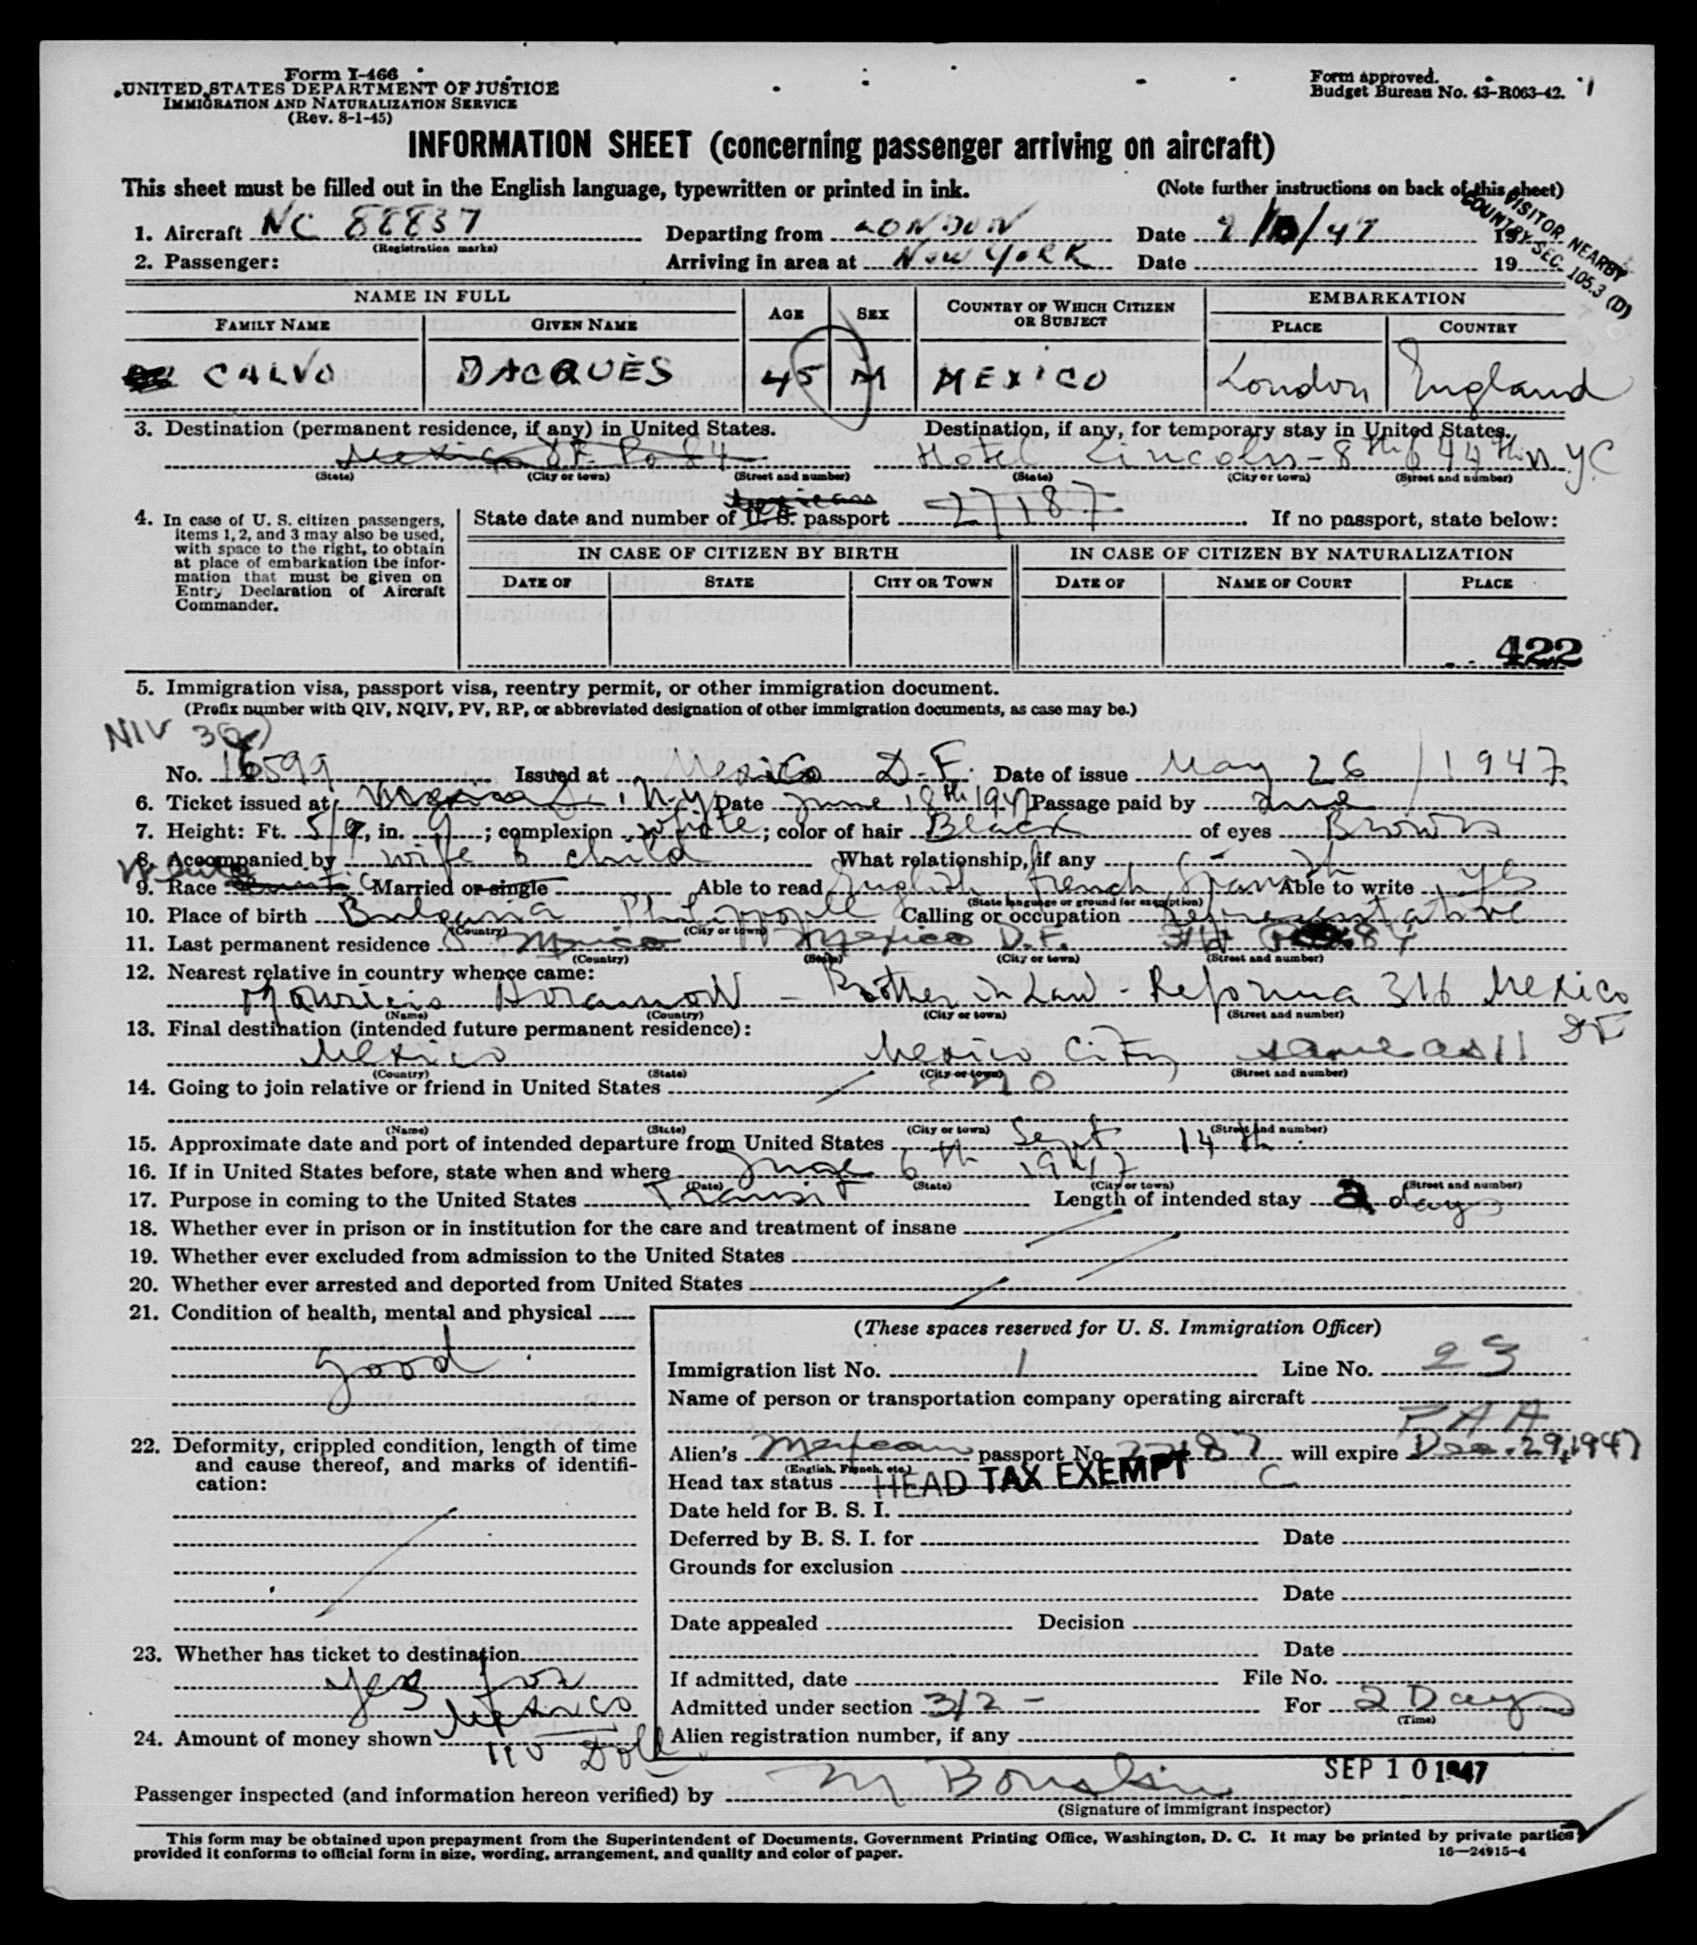 Form I-466
UNITED STATES DEPARTMENT OF JUSTICE
IMMIGRATION AND NATURALIZATION SERVICE
(Rev. 8-1-45)
Form approved.
Budget Bureau No. 43-R063-42.
INFORMATION SHEET (concerning passenger arriving on aircraft)
This sheet must be filled out in the English language, typewritten or printed in ink. (Note further instructions on back of this sheet)
VISITOR, NEARBY
COUNTRY SEC. 105.3 (D)
1. Aircraft NC 88837 Departing from LONDON Date 9/10/47 19
(Registration marks)
2. Passenger: Arriving in area at NEW YORK Date 19
NAME IN FULL AGE SEX COUNTRY OF WHICH CITIZEN OR SUBJECT EMBARKATION
FAMILY NAME GIVEN NAME PLACE COUNTRY
CALVO DACQUÈS 45 M MEXICO London England
3. Destination (permanent residence, if any) in United States. Destination, if any, for temporary stay in United States.
Mexico D.F. Po 84 Hotel Lincoln - 8th & 44th N.Y.C
(State) (City or town) (Street and number) (State) (City or town) (Street and number)
4. In case of U. S. citizen passengers, items 1, 2, and 3 may also be used, with space to the right, to obtain at place of embarkation the information that must be given on Entry Declaration of Aircraft Commander.
Mexican
State date and number of U. S. passport 27187 If no passport, state below:
IN CASE OF CITIZEN BY BIRTH IN CASE OF CITIZEN BY NATURALIZATION
DATE OF STATE CITY OR TOWN DATE OF NAME OF COURT PLACE
422
5. Immigration visa, passport visa, reentry permit, or other immigration document.
(Prefix number with QIV, NQIV, PV, RP, or abbreviated designation of other immigration documents, as case may be.)
NIV 3(2)
No. 16599 Issued at Mexico D.F. Date of issue May 26 / 1947
6. Ticket issued at N.Y. Date June 18th 1947 Passage paid by
7. Height: Ft. 5/9, in. 9; complexion white; color of hair Black of eyes Brown
8. Accompanied by wife & child What relationship, if any
White
9. Race Married or single Able to read English, French, Spanish Able to write Yes
(State language or ground for exemption)
10. Place of birth Bulgaria Philippople Calling or occupation representative
(Country) (City or town)
11. Last permanent residence Mexico Mexico D.F. 84
(Country) (State) (City or town) (Street and number)
12. Nearest relative in country whence came:
Mauricio - Brother in Law - Reforma 316 Mexico DF
(Name) (Country) (City or town) (Street and number)
13. Final destination (intended future permanent residence):
Mexico Mexico City same as 11
(Country) (State) (City or town) (Street and number)
14. Going to join relative or friend in United States no
(Name) (State) (City or town) (Street and number)
15. Approximate date and port of intended departure from United States Sept 14th
16. If in United States before, state when and where June 6th 1947
(Date) (State) (City or town) (Street and number)
17. Purpose in coming to the United States Transit Length of intended stay 2 days
18. Whether ever in prison or in institution for the care and treatment of insane
19. Whether ever excluded from admission to the United States
20. Whether ever arrested and deported from United States
21. Condition of health, mental and physical
good
22. Deformity, crippled condition, length of time and cause thereof, and marks of identification:
23. Whether has ticket to destination
Yes for
Mexico
24. Amount of money shown
110 Doll.
(These spaces reserved for U. S. Immigration Officer)
Immigration list No. 1 Line No. 23
Name of person or transportation company operating aircraft
PAA
Alien's Mexican passport No. 27187 will expire Dec. 29, 1947
(English, French, etc.)
Head tax status HEAD TAX EXEMPT C
Date held for B. S. I.
Deferred by B. S. I. for Date
Grounds for exclusion
Date
Date appealed Decision
Date
If admitted, date File No.
Admitted under section 3/2 - For 2 Days
(Time)
Alien registration number, if any
SEP 10 1947
Passenger inspected (and information hereon verified) by
(Signature of immigrant inspector)
This form may be obtained upon prepayment from the Superintendent of Documents, Government Printing Office, Washington, D. C. It may be printed by private parties
provided it conforms to official form in size, wording, arrangement, and quality and color of paper. 16—24915-4